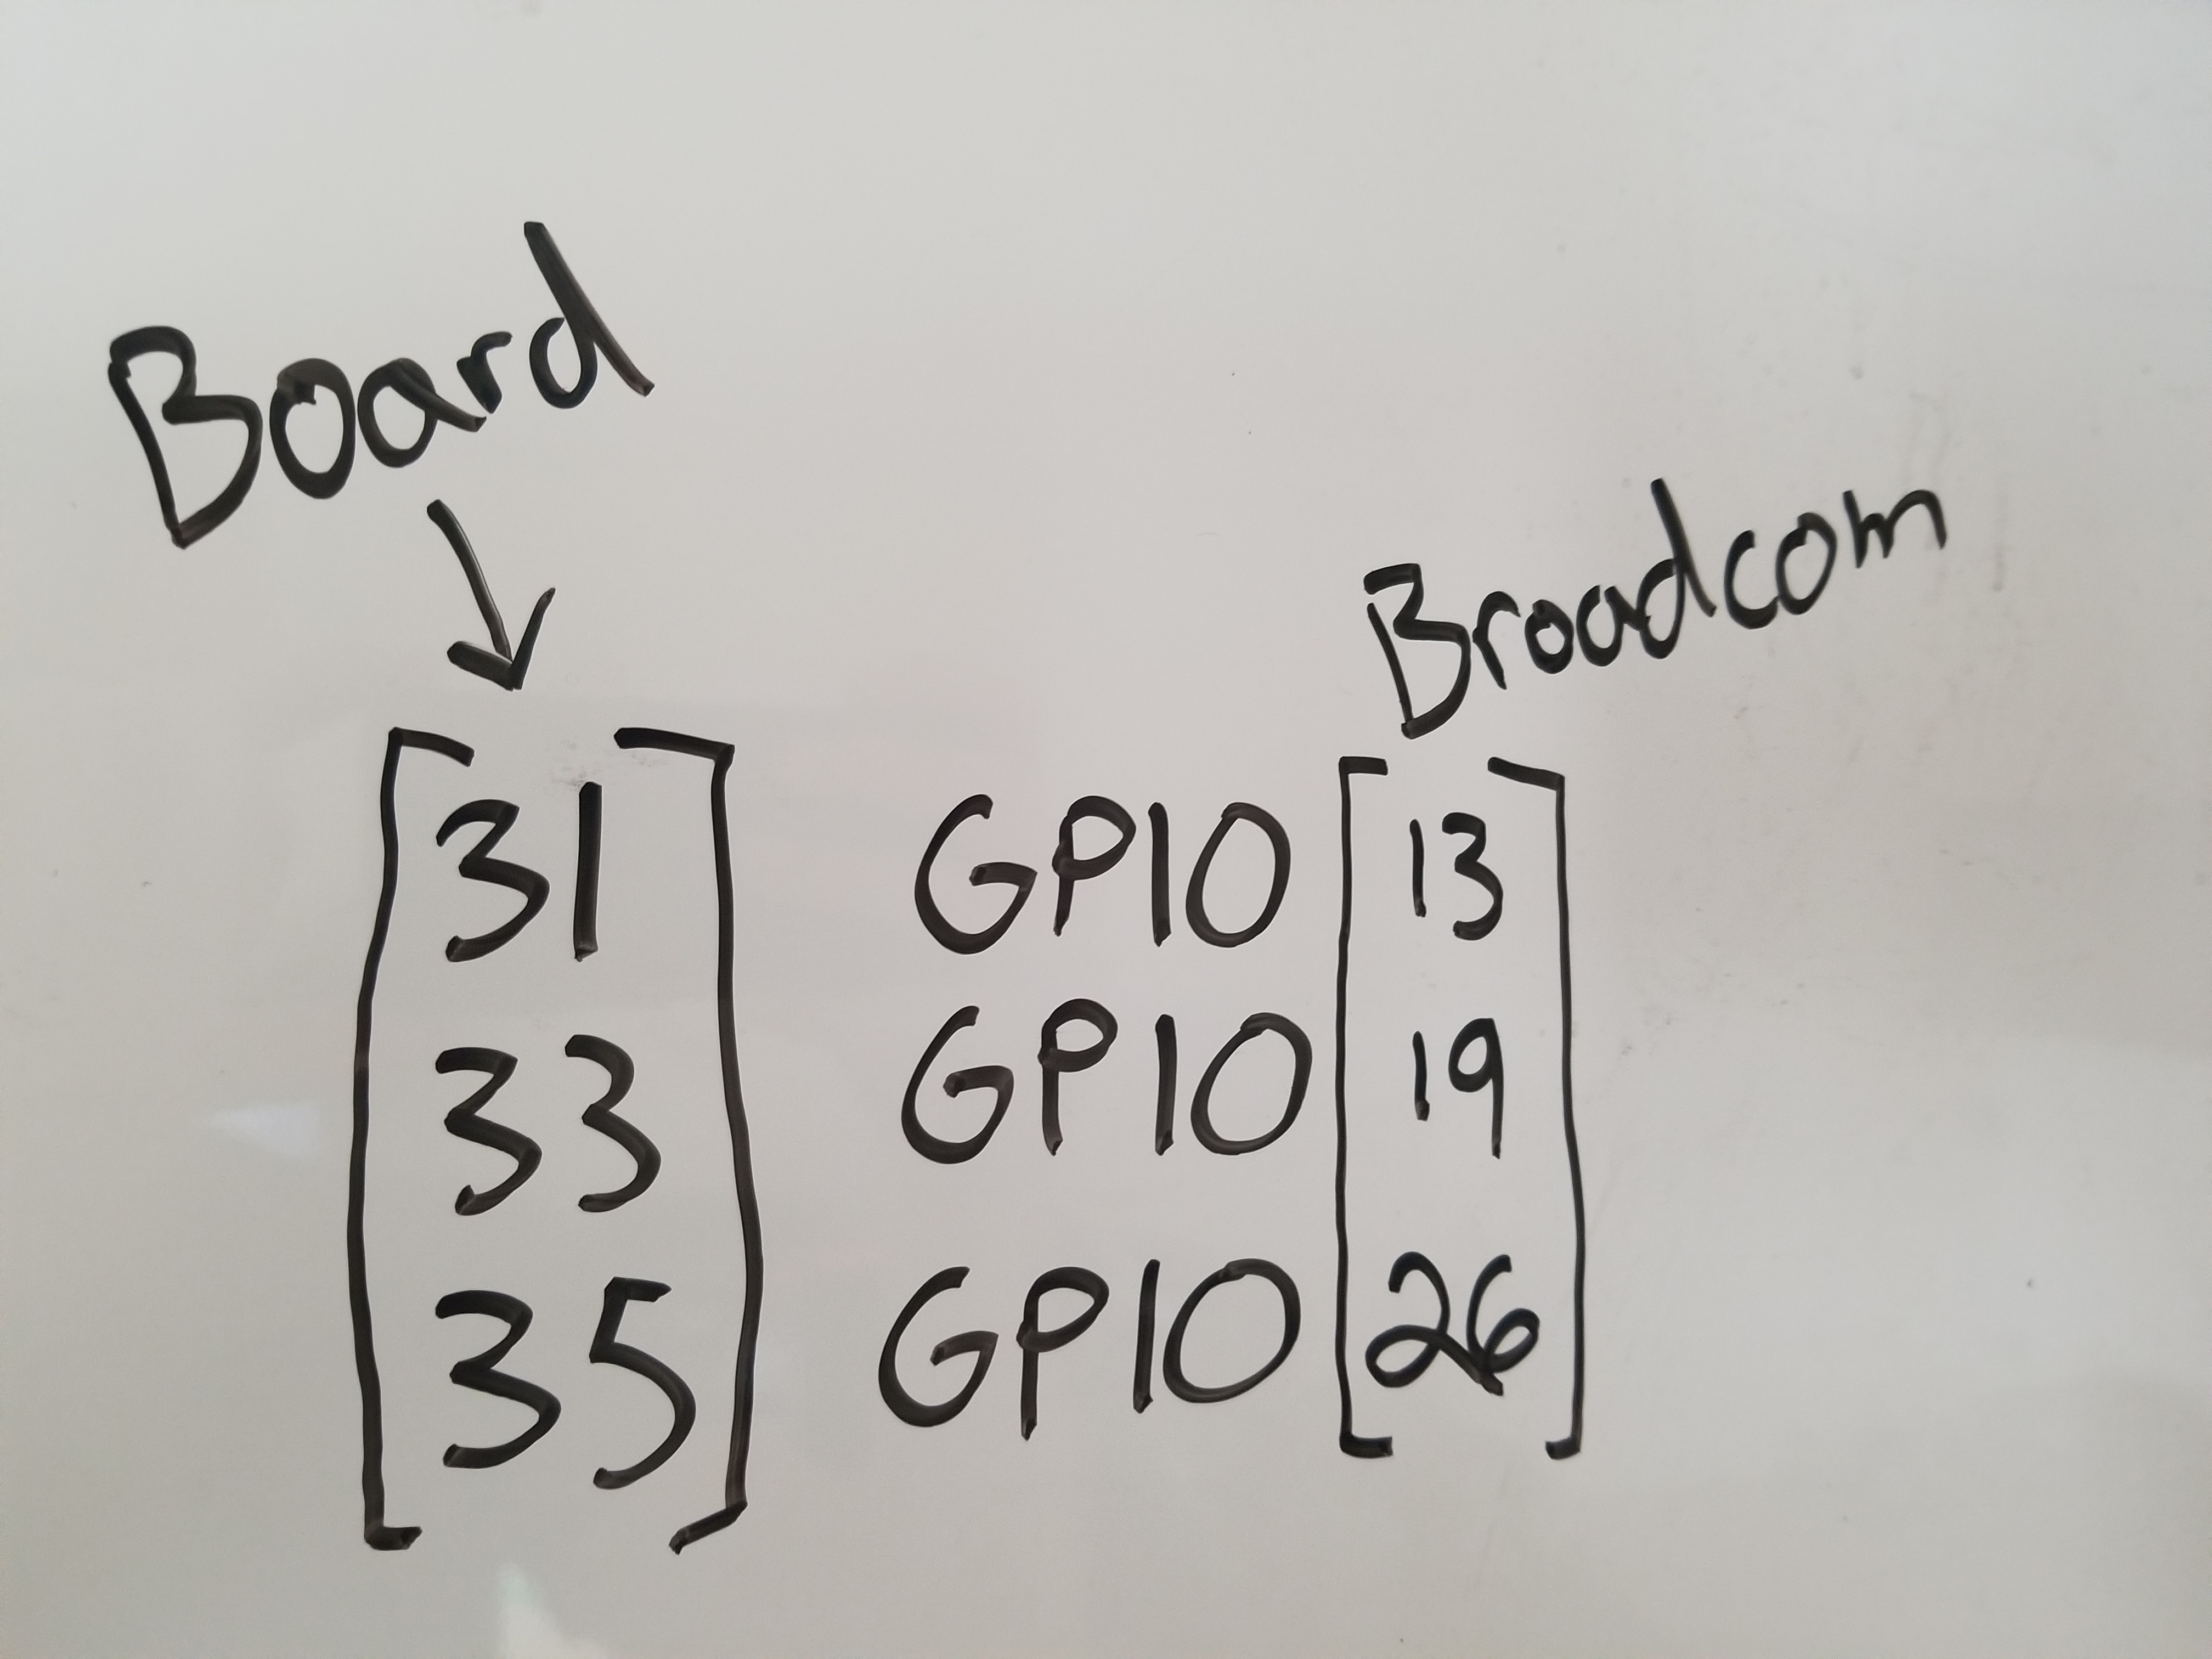 Board
Broadcom
31 GPIO 13
33 GPIO 19
35 GPIO 26